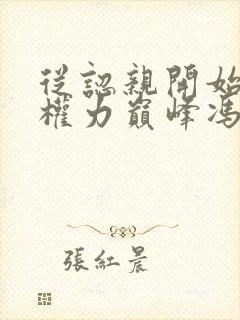 從認親開始
權力巔峰馮
張紅晨